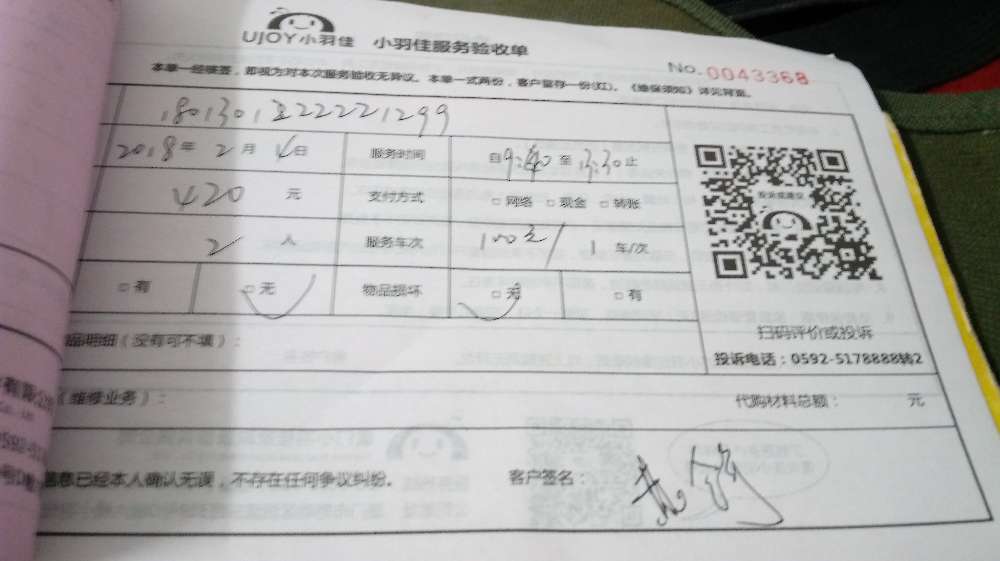 UJOY小羽佳 小羽佳服务验收单
No.0043368
本单一经核签，即视为对本次服务验收无异议。本单一式两份，客户留存一份(红)。《维保须知》详见背面。
2018年2月4日 服务时间 自9:40至13:30止
420元 支付方式 □网络 □现金 □转账
2人 服务车次 100元/1车/次
□有 □无 物品损坏 □无 □有
投诉或建议
扫码评价或投诉
投诉电话：0592-5178888转2
品明细（没有可不填）：
（维修业务）： 代购材料总额： 元
信息已经本人确认无误，不存在任何争议纠纷。 客户签名：